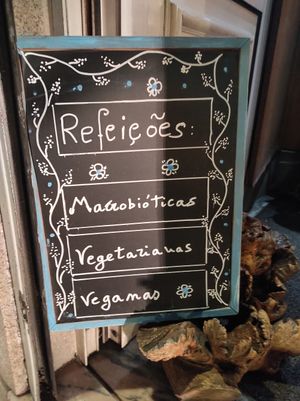 Refeições:
Macrobióticas
Vegetarianas
Veganas